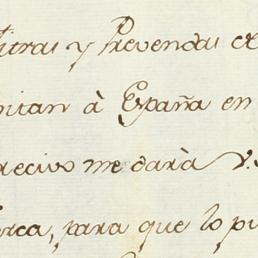 Mitras y Prevendas de
mitan à España en
recivo me darà V.
erca, para que lo pu